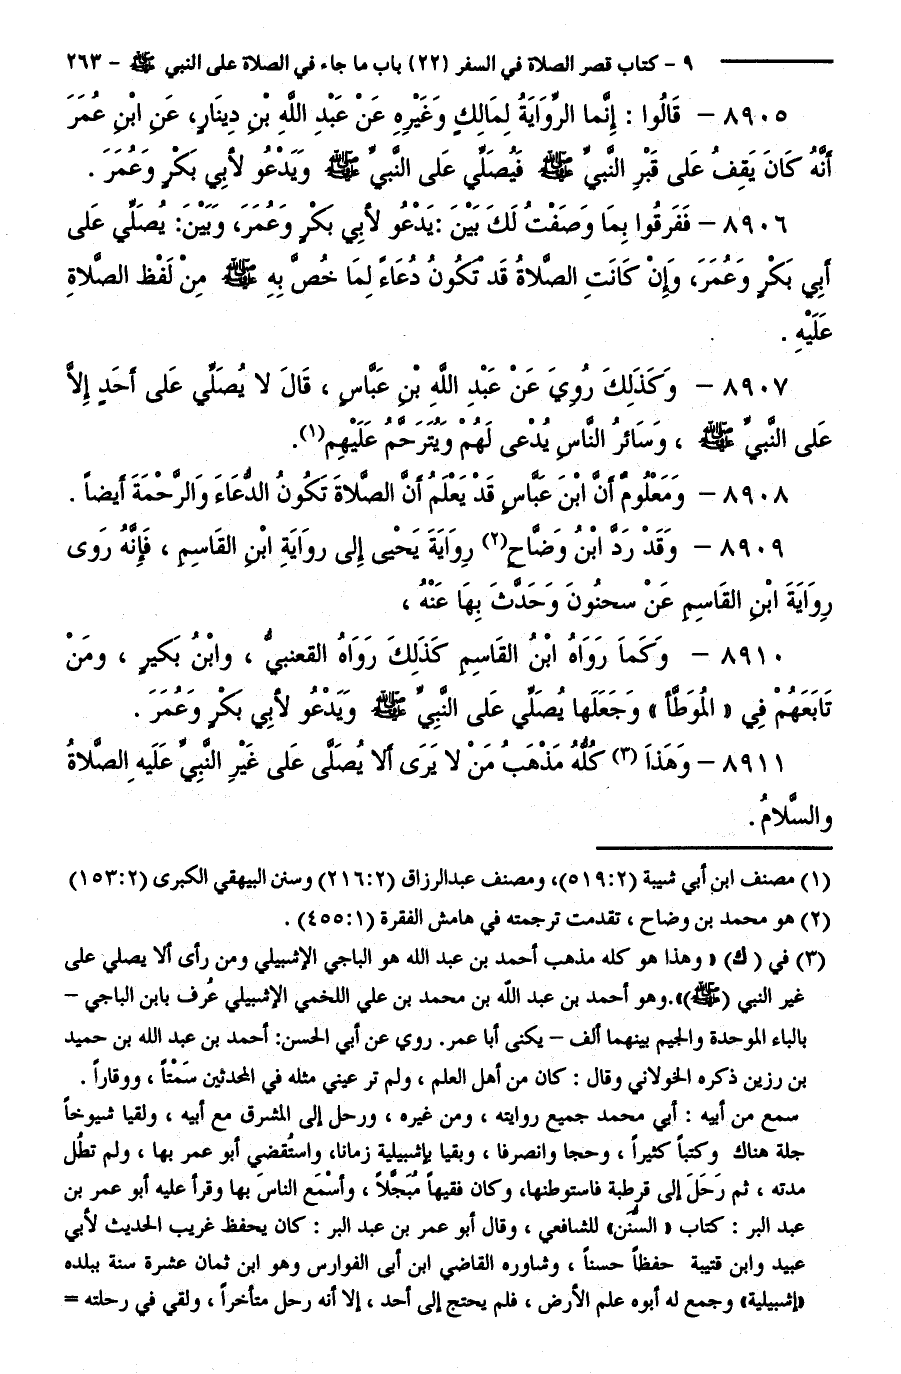 ٩ - كتاب قصر الصلاة في السفر (٢٢) باب ما جاء في الصلاة على النبي ﷺ - ٢٦٣
٨٩٠٥ – قَالُوا : إِنَّما الرِّوَايَةُ لِمَالِكٍ وَغَيْرِهِ عَنْ عَبْدِ اللَّهِ بْنِ دِينَارٍ، عَنِ ابْنِ عُمَرَ
أَنَّهُ كَانَ يَقِفُ عَلى قَبْرِ النَّبيِّ ﷺ فَيُصَلِّي عَلى النَّبيِّ ﷺ وَيَدْعُو لأبي بَكْرٍ وعُمَرَ .
٨٩٠٦ – فَفَرقُوا بِمَا وَصَفْتُ لَكَ بَيْنَ :يَدْعُو لأَبي بَكْرٍ وَعُمَرَ، وَبَيْنَ: يُصَلِّي عَلى
أبِي بَكْرٍ وَعُمَرَ، وَإِنْ كَانَتِ الصَّلاةُ قَد تَكُونُ دُعَاءً لِمَا خُصَّ بِهِ ﷺ مِنْ لَفْظِ الصَّلاةِ
عَلَيْهِ .
٨٩٠٧ – وَكَذَلِكَ رُوِيَ عَنْ عَبْدِ اللَّهِ بْنِ عَبَّاسٍ ، قَالَ لا يُصَلِّي عَلى أَحَدٍ إِلاَّ
عَلى النَّبيِّ ﷺ ، وَسَائرُ النَّاسِ يُدْعى لَهُمْ وَيُتَرَحَّمُ عَلَيْهِم(١).
٨٩٠٨ – وَمَعْلُومٌ أَنَّ ابْنَ عَبَّاسٍ قَد يَعْلَمُ أَنَّ الصَّلاةَ تَكُونُ الدُّعَاءَ وَالرَّحْمَةَ أيضاً .
٨٩٠٩ – وَقَدْ رَدَّ ابْنُ وَضَّاحٍ(٢) رِوَايَةَ يَحْيى إِلى روَايَةِ ابْنِ القَاسِمِ ، فَإِنَّهُ رَوى
رِوَايَةَ ابْنِ القَاسِمِ عَنْ سحنُونَ وَحَدَّثَ بِهَا عَنْهُ ،
٨٩١٠ – وَكَمَا رَوَاهُ ابْنُ القَاسِمِ كَذَلِكَ رَوَاهُ القعنبيُّ ، وابْنُ بَكيرٍ ، ومَنْ
تَابَعَهُمْ فِي « المُوَطَّأ » وَجَعَلَها يُصَلِّي عَلى النَّبيِّ ﷺ وَيَدْعُو لأبِي بَكْرٍ وَعُمَرَ .
٨٩١١ – وَهَذَا (٣) كُلُّهُ مَذْهَبُ مَنْ لا يَرَى ألا يُصَلَّى عَلى غَيْرِ النَّبيِّ عَلَيه الصَّلاةُ
والسَّلامُ.
(١) مصنف ابن أبي شيبة (٥١٩:٢)، ومصنف عبدالرزاق (٢١٦:٢) وسنن البيهقي الكبرى (١٥٣:٢)
(٢) هو محمد بن وضاح ، تقدمت ترجمته في هامش الفقرة (٤٥٥:١) .
(٣) في ( ك) « وهذا هو كله مذهب أحمد بن عبد الله هو الباجي الإشبيلي ومن رأى ألا يصلي على
غير النبي (ﷺ)».وهو أحمد بن عبد اللّه بن محمد بن علي اللخمي الإشبيلي عُرف بابن الباجي –
بالباء الموحدة والجيم بينهما ألف – يكنى أبا عمر. روي عن أبي الحسن: أحمد بن عبد الله بن حميد
بن رزين ذكره الخولاني وقال : كان من أهل العلم ، ولم تر عيني مثله في المحدثين سَمْتاً ، ووقاراً .
سمع من أبيه : أبي محمد جميع روايته ، ومن غيره ، ورحل إلى المشرق مع أبيه ، ولقيا شيوخاً
جلة هناك وكتباً كثيراً ، وحجا وانصرفا ، وبقيا بإشبيلية زمانا، واستُقضي أبو عمر بها ، ولم تطُل
مدته ، ثم رَحَلَ إلى قرطبة فاستوطنها، وكان فقيهاً مُبَجَّلاً ، وأسْمَع الناسَ بها وقرأ عليه أبو عمر بن
عبد البر : كتاب « السُّنَن» للشافعي ، وقال أبو عمر بن عبد البر : كان يحفظ غريب الحديث لأبي
عبيد وابن قتيبة حفظاً حسناً ، وشاوره القاضي ابن أبى الفوارس وهو ابن ثمان عشرة سنة ببلده
«إشبيلية» وجمع له أبوه علم الأرض ، فلم يحتج إلى أحد ، إلا أنه رحل متأخراً ، ولقي في رحلته =